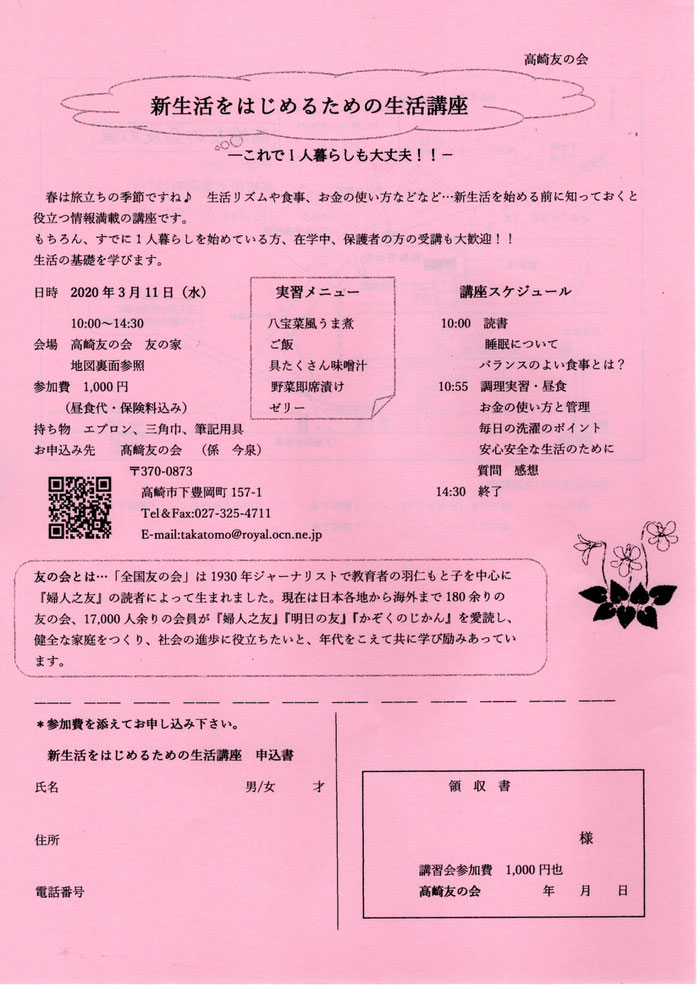 高崎友の会
新生活をはじめるための生活講座
―これで1人暮らしも大丈夫!!－
春は旅立ちの季節ですね♪ 生活リズムや食事、お金の使い方などなど…新生活を始める前に知っておくと
役立つ情報満載の講座です。
もちろん、すでに1人暮らしを始めている方、在学中、保護者の方の受講も大歓迎!!
生活の基礎を学びます。
日時 2020年3月11日（水）
10:00～14:30
会場 高崎友の会 友の家
地図裏面参照
参加費 1,000円
（昼食代・保険料込み）
持ち物 エプロン、三角巾、筆記用具
お申込み先 高﨑友の会 （係 今泉）
〒370-0873
高崎市下豊岡町157-1
Tel＆Fax:027-325-4711
E-mail:takatomo@royal.ocn.ne.jp
実習メニュー
八宝菜風うま煮
ご飯
具たくさん味噌汁
野菜即席漬け
ゼリー
講座スケジュール
10:00 読書
睡眠について
バランスのよい食事とは？
10:55 調理実習・昼食
お金の使い方と管理
毎日の洗濯のポイント
安心安全な生活のために
質問 感想
14:30 終了
友の会とは…「全国友の会」は1930年ジャーナリストで教育者の羽仁もと子を中心に
『婦人之友』の読者によって生まれました。現在は日本各地から海外まで180余りの
友の会、17,000人余りの会員が『婦人之友』『明日の友』『かぞくのじかん』を愛読し、
健全な家庭をつくり、社会の進歩に役立ちたいと、年代をこえて共に学び励みあってい
ます。
＊参加費を添えてお申し込み下さい。
新生活をはじめるための生活講座 申込書
氏名 男/女 才
住所
電話番号
領 収 書
様
講習会参加費 1,000円也
高崎友の会 年 月 日